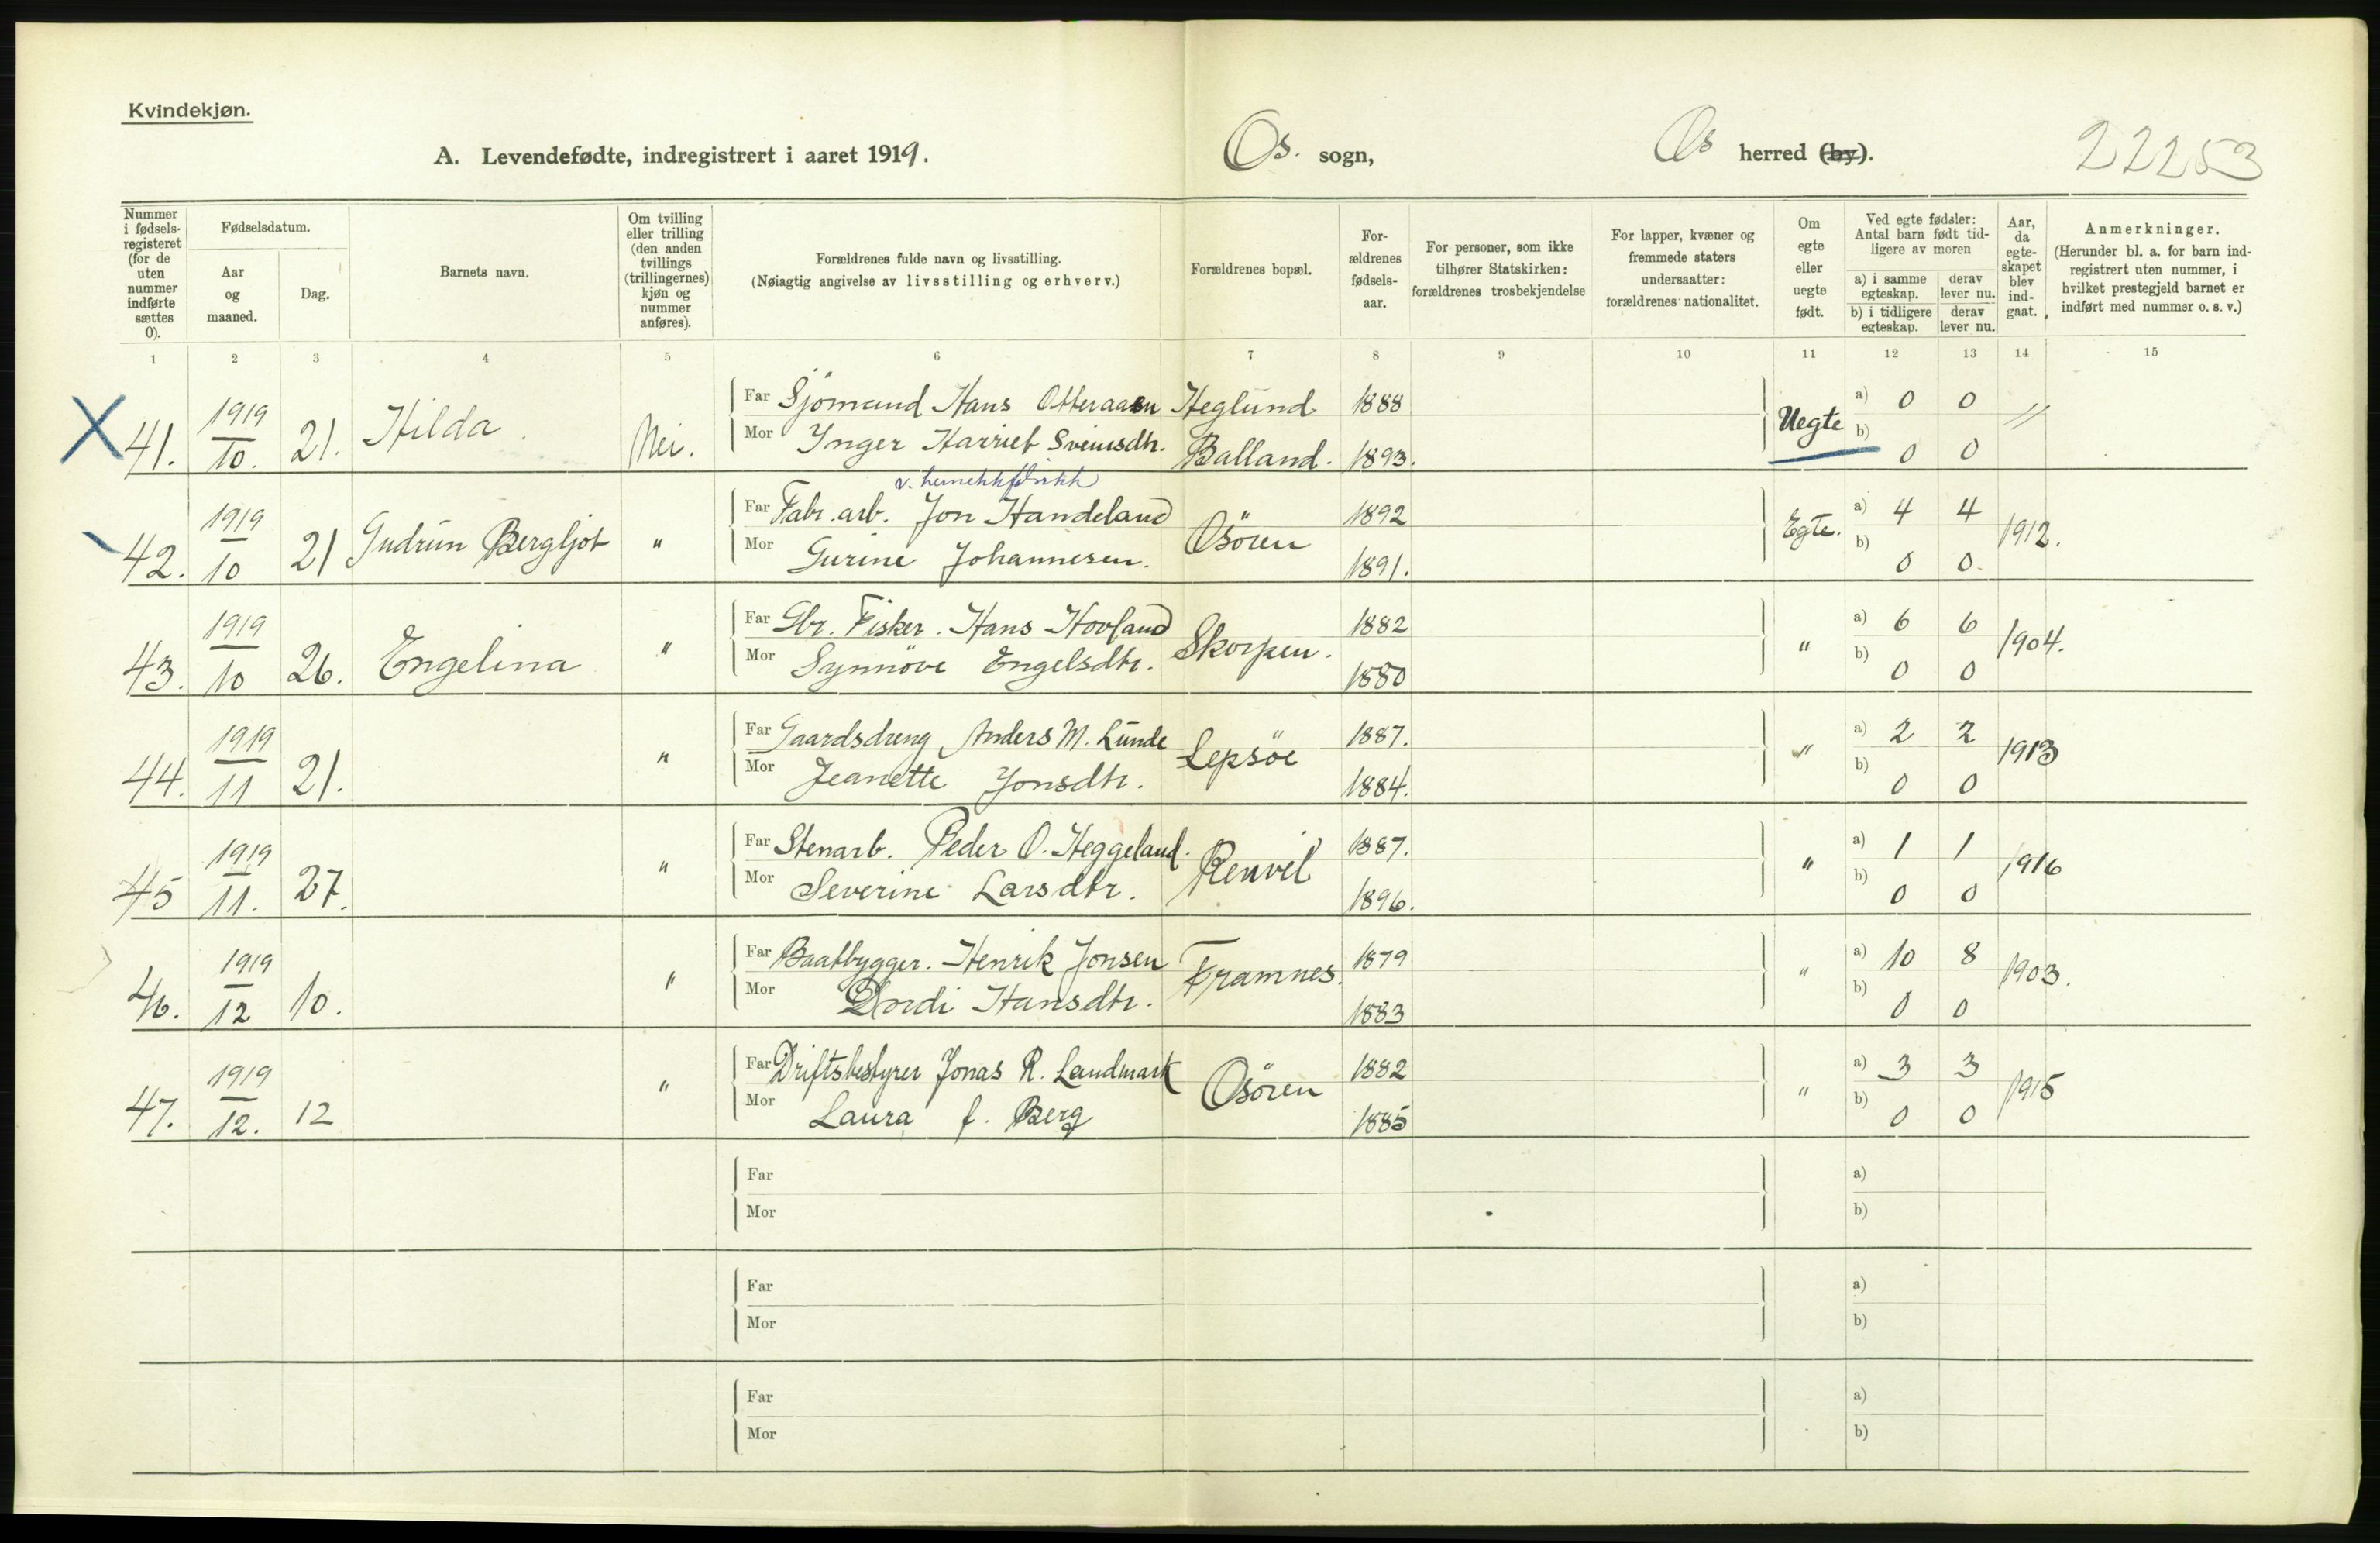 Kvindekjøn.
A. Levendefødte, indregistrert i aaret 1919. Os. sogn, Os herred (by). 22253
Nummer i fødsels-registeret (for de uten nummer indførte sættes 0).
Fødselsdatum.
Aar og maaned.
Dag.
Barnets navn.
Om tvilling eller trilling (den anden tvillings (trillingernes) kjøn og nummer anføres).
Forældrenes fulde navn og livsstilling.
(Nøiagtig angivelse av livsstilling og erhverv.)
Forældrenes bopæl.
For-ældrenes fødsels-aar.
For personer, som ikke tilhører Statskirken: forældrenes trosbekjendelse
For lapper, kvæner og fremmede staters undersaatter: forældrenes nationalitet.
Om egte eller uegte født.
Ved egte fødsler: Antal barn født tid-ligere av moren
a) i samme egteskap. derav lever nu.
b) i tidligere egteskap. derav lever nu.
Aar, da egte-skapet blev ind-gaat.
Anmerkninger.
(Herunder bl. a. for barn ind-registrert uten nummer, i hvilket prestegjeld barnet er indført med nummer o. s. v.)
1 2 3 4 5 6 7 8 9 10 11 12 13 14 15
X 41. 1919 10. 21. Hilda. Nei. Far Sjömand Hans Otteraaen Heglund 1888 Uegte a) 0 0 "
Mor Ynger Harriet Sveinsdtr. Balland. 1893. b) 0 0
42. 1919 10 21 Gudrun Bergljot " Far Fabr. arb. Jon Handeland Osören 1892 Egte. a) 4 4 1912.
Mor Gurine Johannesen. 1891. b) 0 0.
43. 1919 10 26. Engelina " Far Gbr. Fisker. Hans Hovland Skorpen. 1882 " a) 6 6 1904.
Mor Synnöve Engelsdtr. 1880 b) 0 0
44. 1919 11 21. " Far Gaardsdreng Anders M. Lunde Lepsöe 1887. " a) 2 2 1913
Mor Jeanette Jonsdtr. 1884. b) 0 0
45 1919 11. 27. " Far Stenarb. Peder O. Heggeland. Renvel 1887. " a) 1 1 1916
Mor Severine Larsdtr. 1896. b) 0 0
46. 1919 12 10. " Far Baatbygger. Henrik Jonsen Framnes. 1879 " a) 10 8 1903.
Mor Dordi Hansdtr. 1883 b) 0 0
47. 1919 12. 12 " Far Driftsbestyrer Jonas R. Landmark Osören 1882 " a) 3 3 1915
Mor Laura f. Berg 1885 b) 0 0
Far a)
Mor b)
Far a)
Mor b)
Far a)
Mor b)